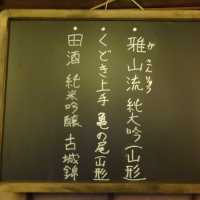 ・雅山流 純大吟(山形)
がさんりゅう
・くどき上手 亀の尾(山形)
・田酒 純米吟醸 古城錦